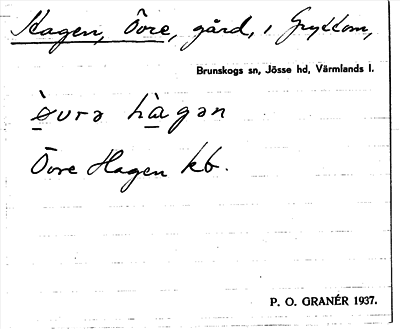 Hagen, Övre, gård, i Gryttom,
Brunskogs sn, Jösse hd, Värmlands l.
ø̀vrə hàgən
Övre Hagen kb.
P. O. GRANÉR 1937.